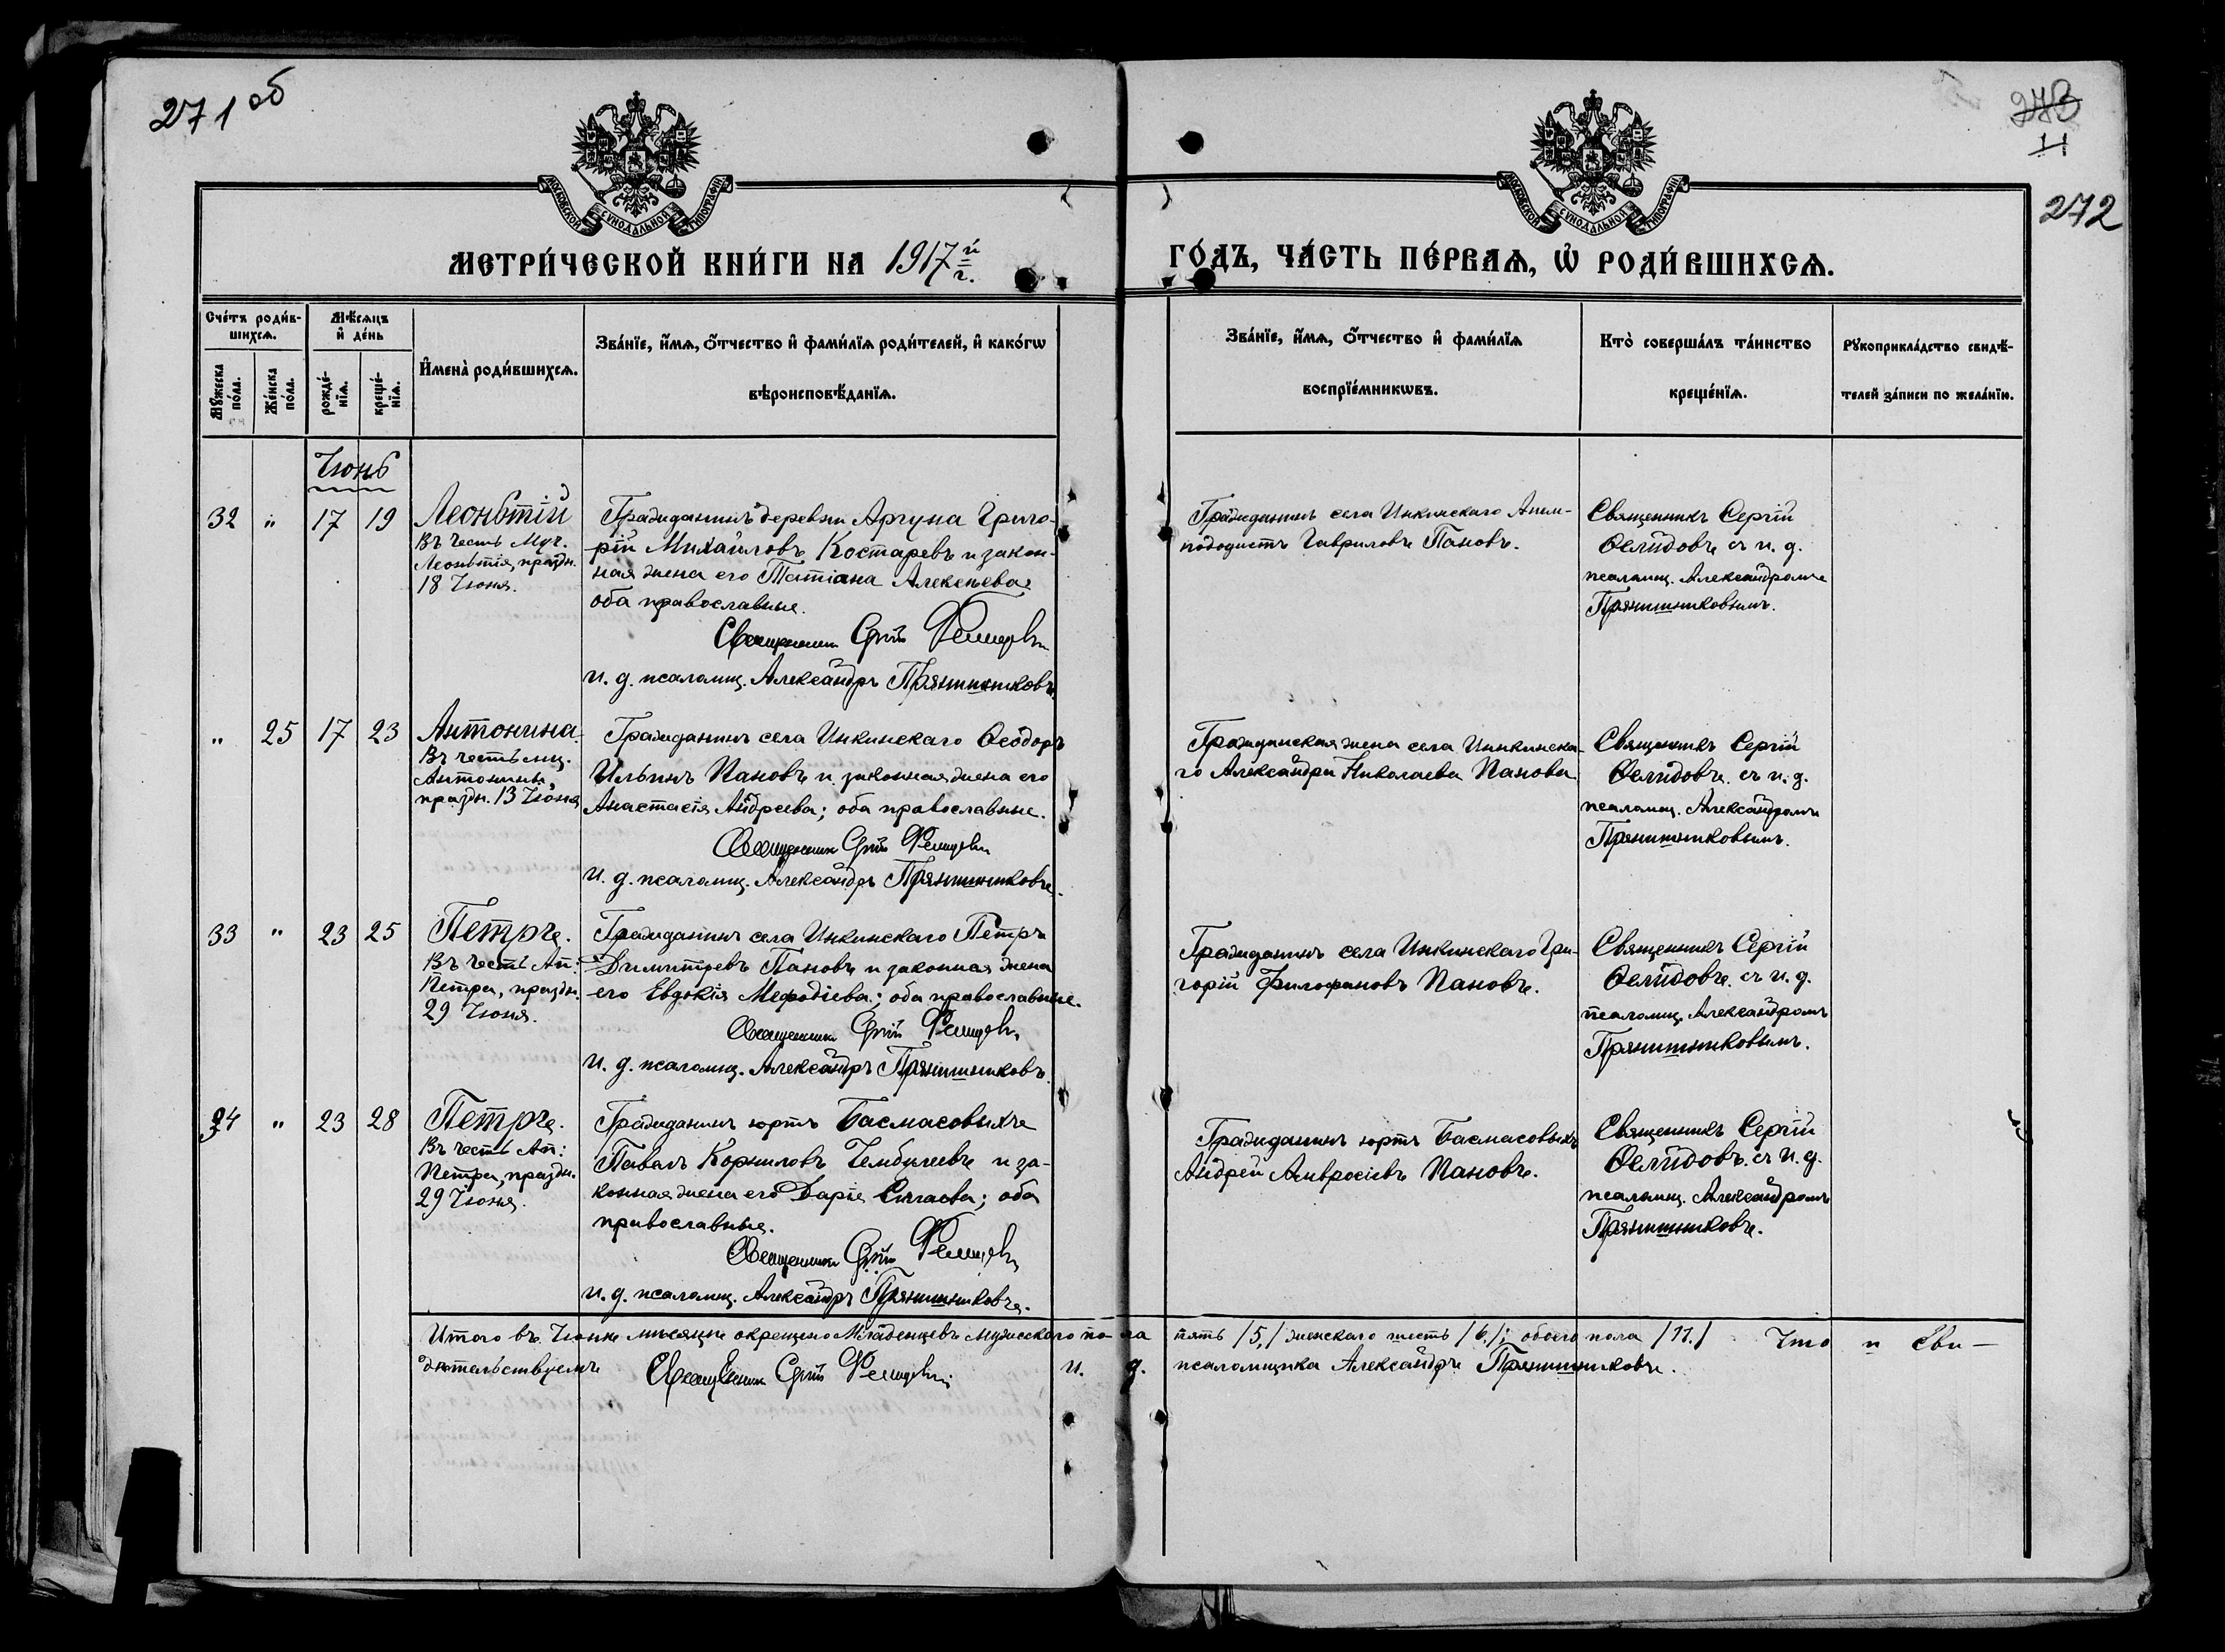 271 об
273
11
272
МОСКОВСКОЙ СѴНОДАЛЬНОЙ ТИПОГРАФІИ
МОСКОВСКОЙ СѴНОДАЛЬНОЙ ТИПОГРАФІИ
МЕТРИ́ЧЕСКОЙ КНИ́ГИ НА 1917й г.
ГО́ДЪ, ЧА́СТЬ ПЕ́РВАѦ, Ѡ҆ РОДИ́ВШИХСѦ.
Сче́тъ роди́в-
шихсѧ.
Мѣ́сѧцъ
и҆ де́нь
Мꙋ́жеска
по́ла.
Же́нска
по́ла.
рожде́-
нїѧ.
креще́-
нїѧ.
И҆мена̀ роди́вшихсѧ.
Зва́нїе, и҆́мѧ, ѻ҆́тчество и҆ фами́лїѧ роди́телей, и҆ како́гѡ
вѣроисповѣ́данїѧ.
Зва́нїе, и҆́мѧ, ѻ҆́тчество и҆ фами́лїѧ
воспрїе́мникѡвъ.
Кто̀ соверша́лъ та́инство
креще́нїѧ.
Рꙋкоприкла́дство свидѣ́-
телей за́писи по жела́нїю.
Іюнь
32 " 17 19
Леонтій
Въ честь Муч.
Леонтія, праздн.
18 Іюня.
Гражданинъ деревни Аргуна Григо-
рій Михаиловъ Костаревъ и закон-
ная жена его Татіана Алексѣева;
оба православные.
Священникъ Сергій
и. д. псаломщ. Александръ Прянишниковъ.
Гражданинъ села Инкинскаго Анем-
пододистъ Гавриловъ Пановъ.
Священникъ Сергій
Ѳелидовъ съ и. д.
псаломщ. Александромъ
Прянишниковымъ.
" 25 17 23
Антонина.
Въ честь мц.
Антонины,
праздн. 13 Іюня
Гражданинъ села Инкинскаго Ѳеодоръ
Ильинъ Пановъ и законная жена его
Анастасія Андреева; оба православные.
Священникъ Сергій
и. д. псаломщ. Александръ Прянишниковъ.
Гражданская жена села Инкинска-
го Александра Николаева Панова
Священникъ Сергій
Ѳелидовъ съ и. д.
псаломщ. Александромъ
Прянишниковымъ.
33 " 23 25
Петръ.
Въ честь Ап:
Петра, праздн.
29 Іюня.
Гражданинъ села Инкинскаго Петръ
Димитріевъ Пановъ и законная жена
его Евдокія Меѳодіева; оба православные.
Священникъ Сергій
и. д. псаломщ. Александръ Прянишниковъ.
Гражданинъ села Инкинскаго Гри-
горій Филофановъ Пановъ.
Священникъ Сергій
Ѳелидовъ съ и. д.
псаломщ. Александромъ
Прянишниковымъ.
34 " 23 28
Петръ.
Въ честь Ап:
Петра, праздн.
29 Іюня.
Гражданинъ юртъ Басмасовыхъ
Павелъ Корниловъ и за-
конная жена его Дарія; оба
православные.
Священникъ Сергій
и. д. псаломщ. Александръ Прянишниковъ.
Гражданинъ юртъ Басмасовыхъ
Андрей Амвросіевъ Пановъ.
Священникъ Сергій
Ѳелидовъ съ и. д.
псаломщ. Александромъ
Прянишниковъ.
Итого въ Іюнѣ мѣсяцѣ окрещено младенцевъ мужескаго пола пять /5,/ женскаго шесть /6./; обоего пола /11./ Что и сви-
дѣтельствуемъ Священникъ Сергій и. д. псаломщика Александръ Прянишниковъ.